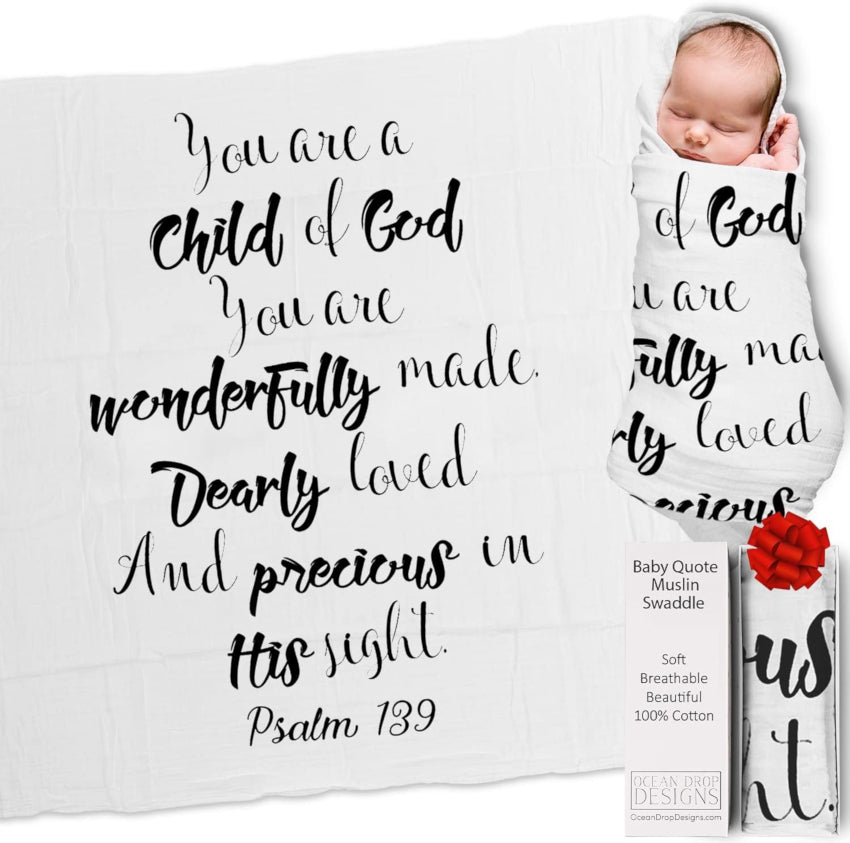 You are a
Child of God
You are
wonderfully made.
Dearly loved
And precious in
His sight.
Psalm 139
of God
u are
fully ma
rly loved
precious
Baby Quote
Muslin
Swaddle
Soft
Breathable
Beautiful
100% Cotton
OCEAN DROP
DESIGNS
OceanDropDesigns.com
ous
ht.